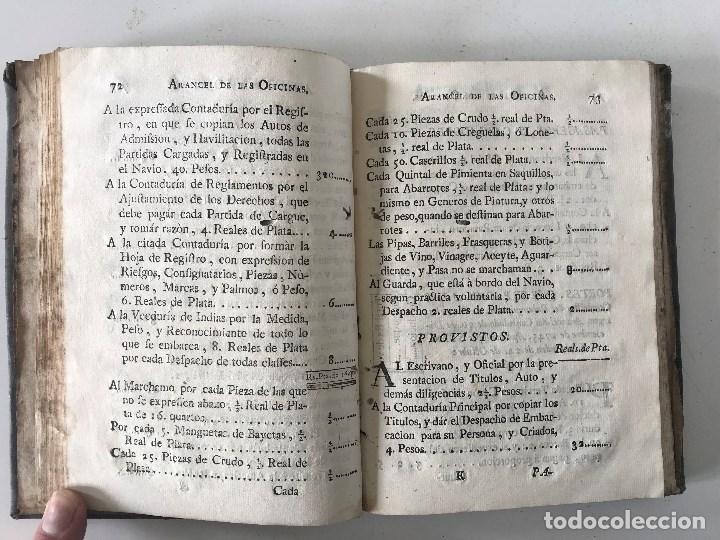 72 ARANCEL DE LAS OFICINAS.
A la expressada Contaduría por el Regis-
tro, en que se copian los Autos de
Admission, y Havilitacion, todas las
Partidas Cargadas, y Registradas en
el Navio, 40. Pesos. 320
A la Contaduría de Reglamentos por el
Ajustamiento de los Derechos, que
debe pagár cada Partida de Cargue,
y tomár razón, 4. Reales de Plata. 4
A la citada Contaduría por formár la
Hoja de Registro, con expression de
Riesgos, Consignatarios, Piezas, Nú-
meros, Marcas, y Palmos, ó Peso,
6. Reales de Plata. 6
A la Veeduría de Indias por la Medida,
Peso, y Reconocimiento de todo lo
que se embarca, 8. Reales de Plata
por cada Despacho de todas classes. 8
Al Marchamo por cada Pieza de las que
no se expressen abaxo, ½. Real de Pla-
ta de 16. quartos. ½
Por cada 5. Manguetas de Bayetas, ½.
Real de Plata. ½
Cada 25. Piezas de Crudo, ½. Real de
Plata. ½
Cada
ARANCEL DE LAS OFICINAS. 73
Cada 25. Piezas de Crudo ½. real de Pta. ½
Cada 10. Piezas de Creguelas, ó Lone-
tas, ½. real de Plata. ½
Cada 50. Caserillos ½. real de Plata. ½
Cada Quintal de Pimienta en Saquillos,
para Abarrotes, ½. real de Plata: y lo
mismo en Generos de Pintura, y otros
de peso, quando se destinan para Abar-
rotes. ½
Las Pipas, Barriles, Frasqueras, y Boti-
jas de Vino, Vinagre, Aceyte, Aguar-
diente, y Pasa no se marchaman. 8
Al Guarda, que está à bordo del Navio,
segun práctica voluntaria, por cada
Despacho 2. reales de Plata. 2
PROVISTOS.
Reals. de Pta.
AL Escrivano, y Oficial por la pre-
sentacion de Titulos, Auto, y
demás diligencias, 2½. Pesos. 20
A la Contaduría Principal por copiár los
Titulos, y dár el Despacho de Embar-
cacion para su Persona, y Criados,
4. Pesos. 32
K PA-
todocoleccion.net